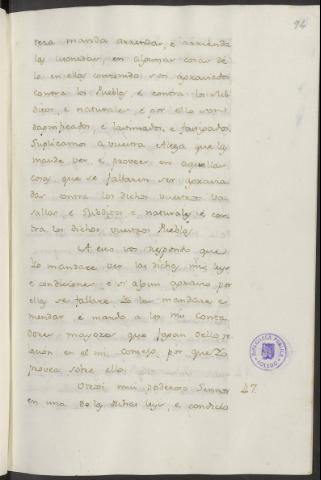 94
tera manda arrendar, e arrienda
las monedas, en algunas cosas de
lo en ellas contenido son agraviados
contra los Pueblos e contra los sub
ditos, e naturales e por ello son
dapnificados, e lastimados, e fatigados.
Suplicamos a vuestra Alteza que las
mande ver, e proveer en aquellas
cosas que se fallaren ser agravia
das contra los dichos vuestros Va
sallos e Subditos e naturales e con
tra los dichos vuestros Pueblos.
A esto vos respondo que
Yo mandare ver las dichas mis leyes
e condiciones e si algun agravio por
ellas se fallare Yo lo mandare e
mendar e mando a los mis Conta
dores mayores que fagan dello re
lacion en el mi consejo, por que Yo
provea sobre ello.
Otrosi mui poderoso Sennor 47.
en una de las dichas leyes, e condicio
BIBLIOTECA PUBLICA
TOLEDO